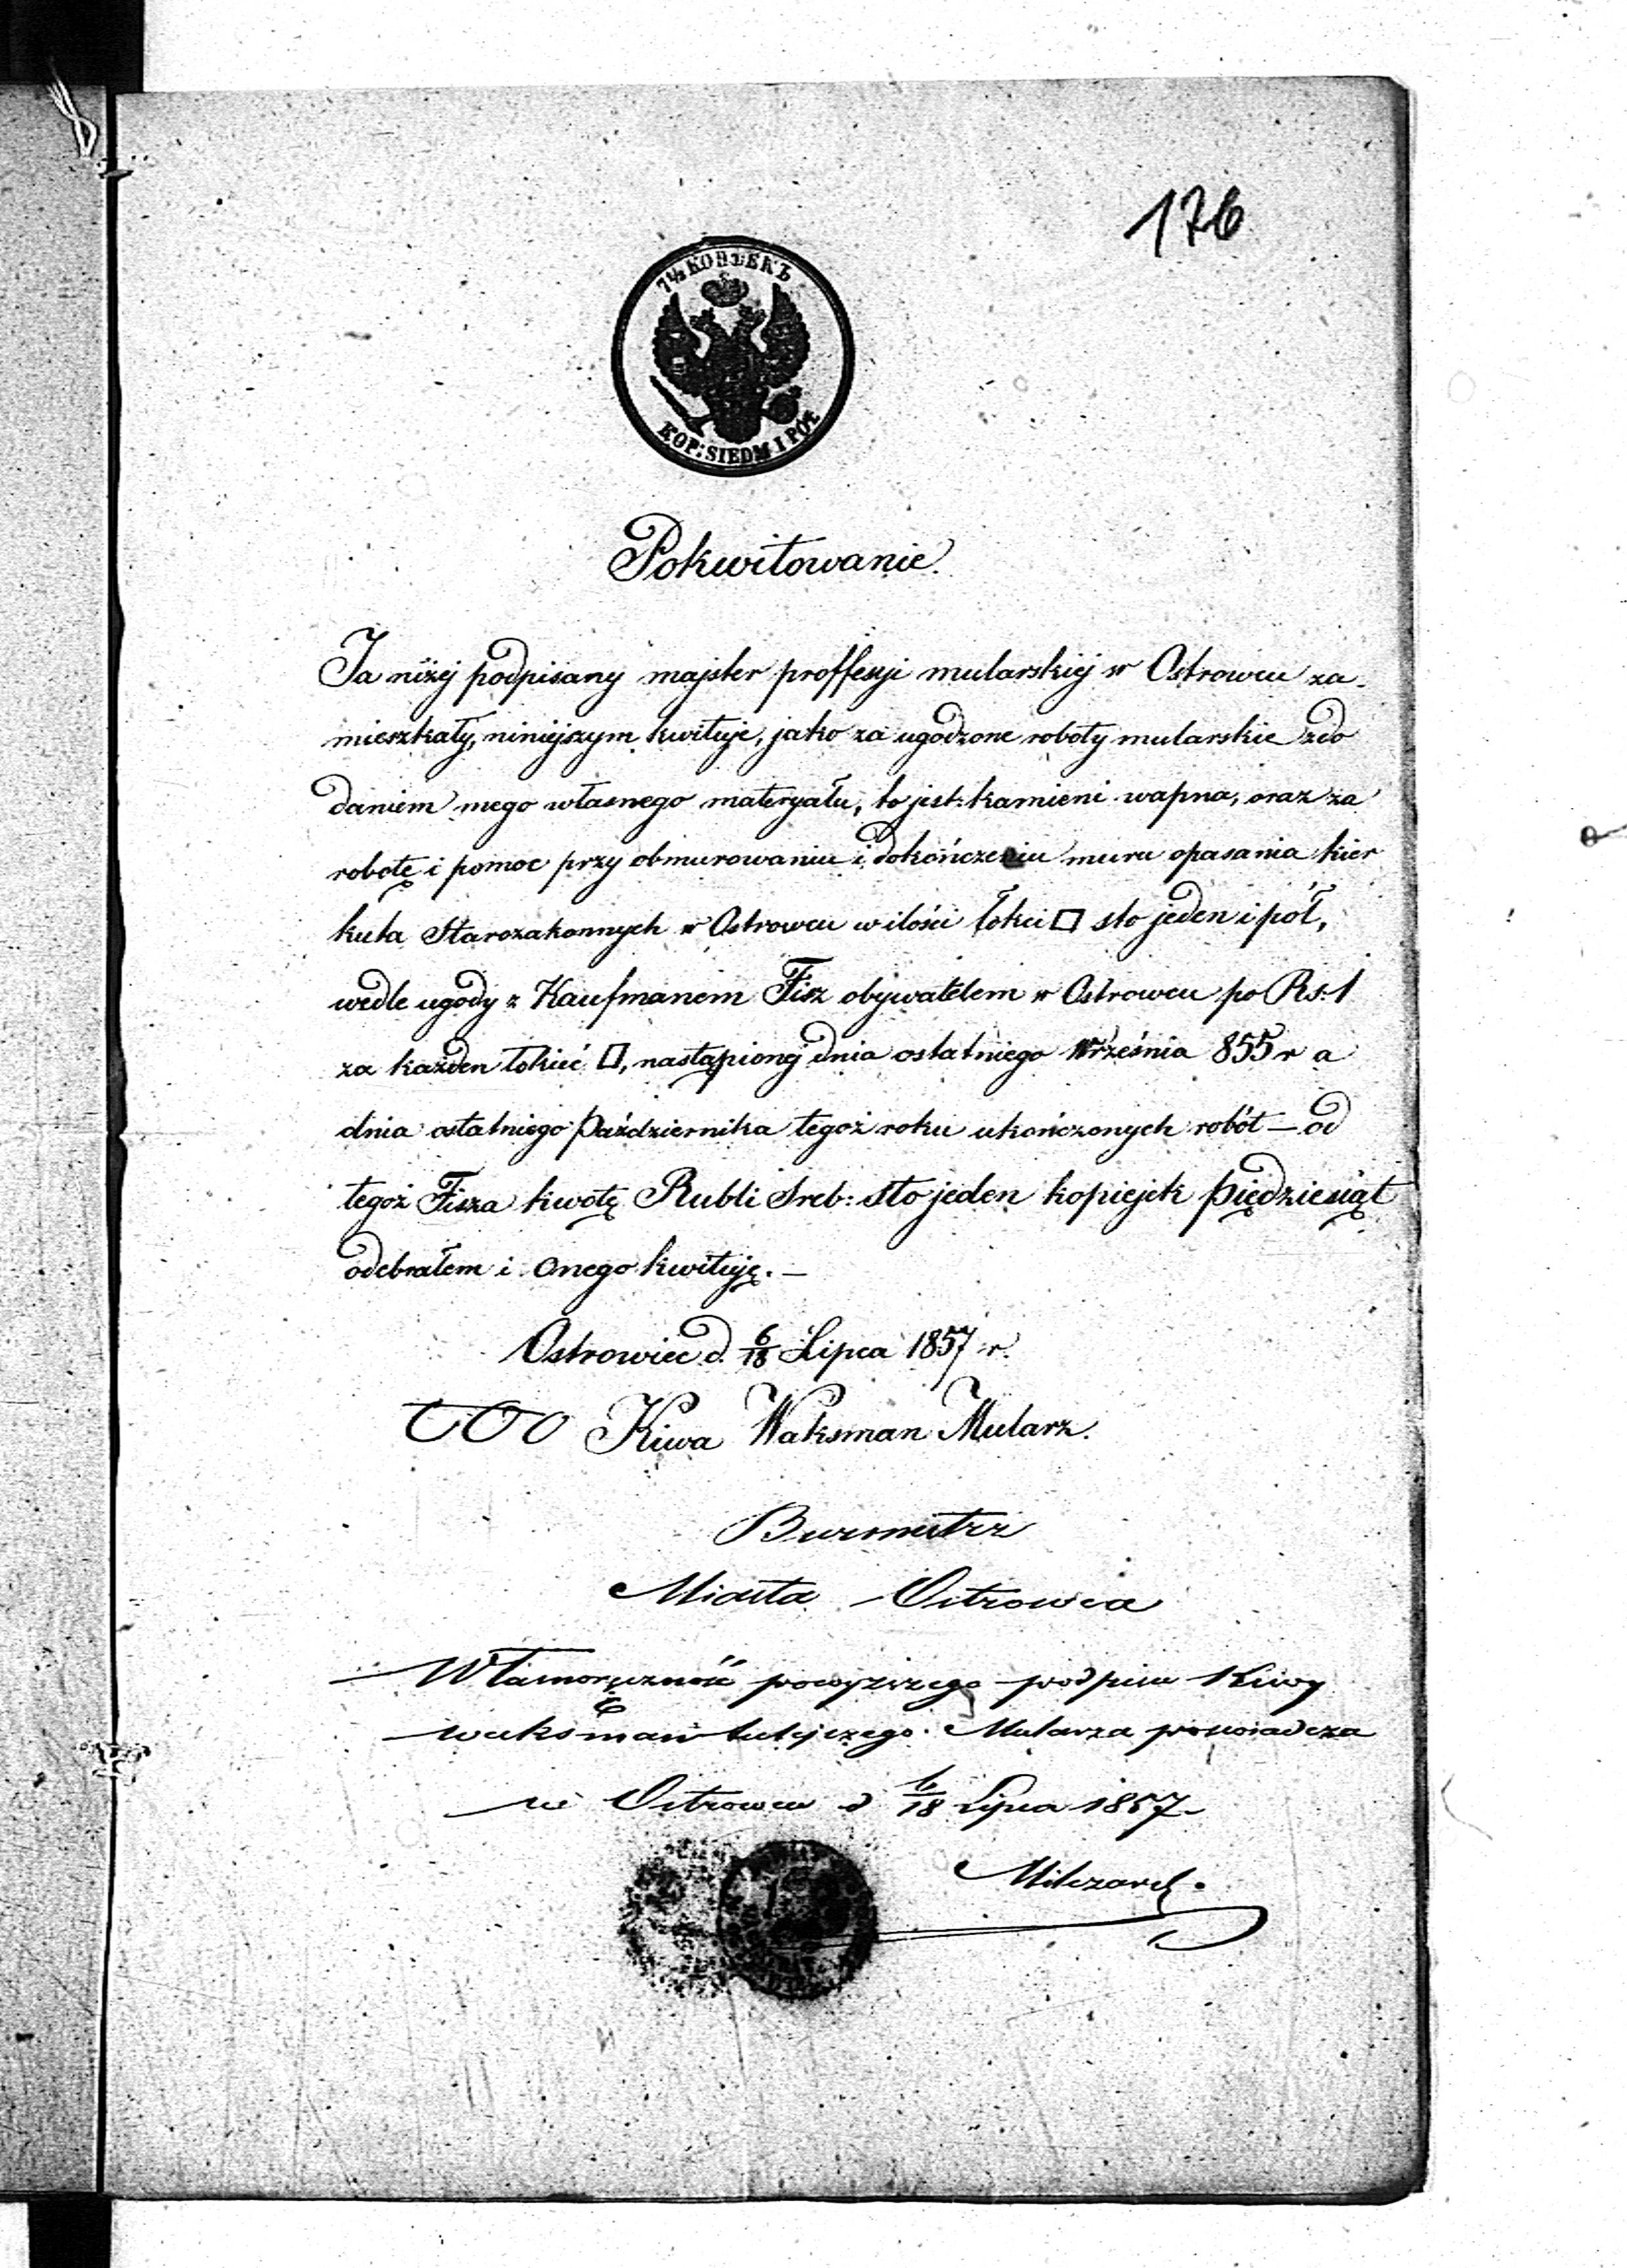 176
7½ КОПѢЕКЪ
KOP: SIEDM I PÓŁ
Pokwitowanie.
Ja niżej podpisany majster proffesyi mularskiej w Ostrowcu za-
mieszkały, niniejszym kwituje, jako za ugodzone roboty mularskie z do
daniem mego własnego materyału, to jest: kamieni wapna, oraz za
robotę i pomoc przy obmurowaniu i dokończeniu muru opasania kier
kuta Starozakonnych w Ostrowcu w ilości łokci □ sto jeden i pół,
wedle ugody z Kaufmanem Fisz obywatelem w Ostrowcu po Rs: 1
za każden łokieć □, nastąpionej dnia ostatniego Września 855 r a
dnia ostatniego Października tegoż roku ukończonych robót — od
tegoż Fisza kwotę Rubli Sreb: sto jeden kopiejek piędziesiąt
odebrałem i onego kwituję. —
Ostrowiec d. 6/18 Lipca 1857 r.
Kiwa Waksman Mularz.
Burmistrz
Miasta Ostrowca
Własnoręczność powyższego podpisu Kiwy
Waksman tutejszego Mularza poswiadcza
w Ostrowcu d 6/18 Lipca 1857
Milczarek